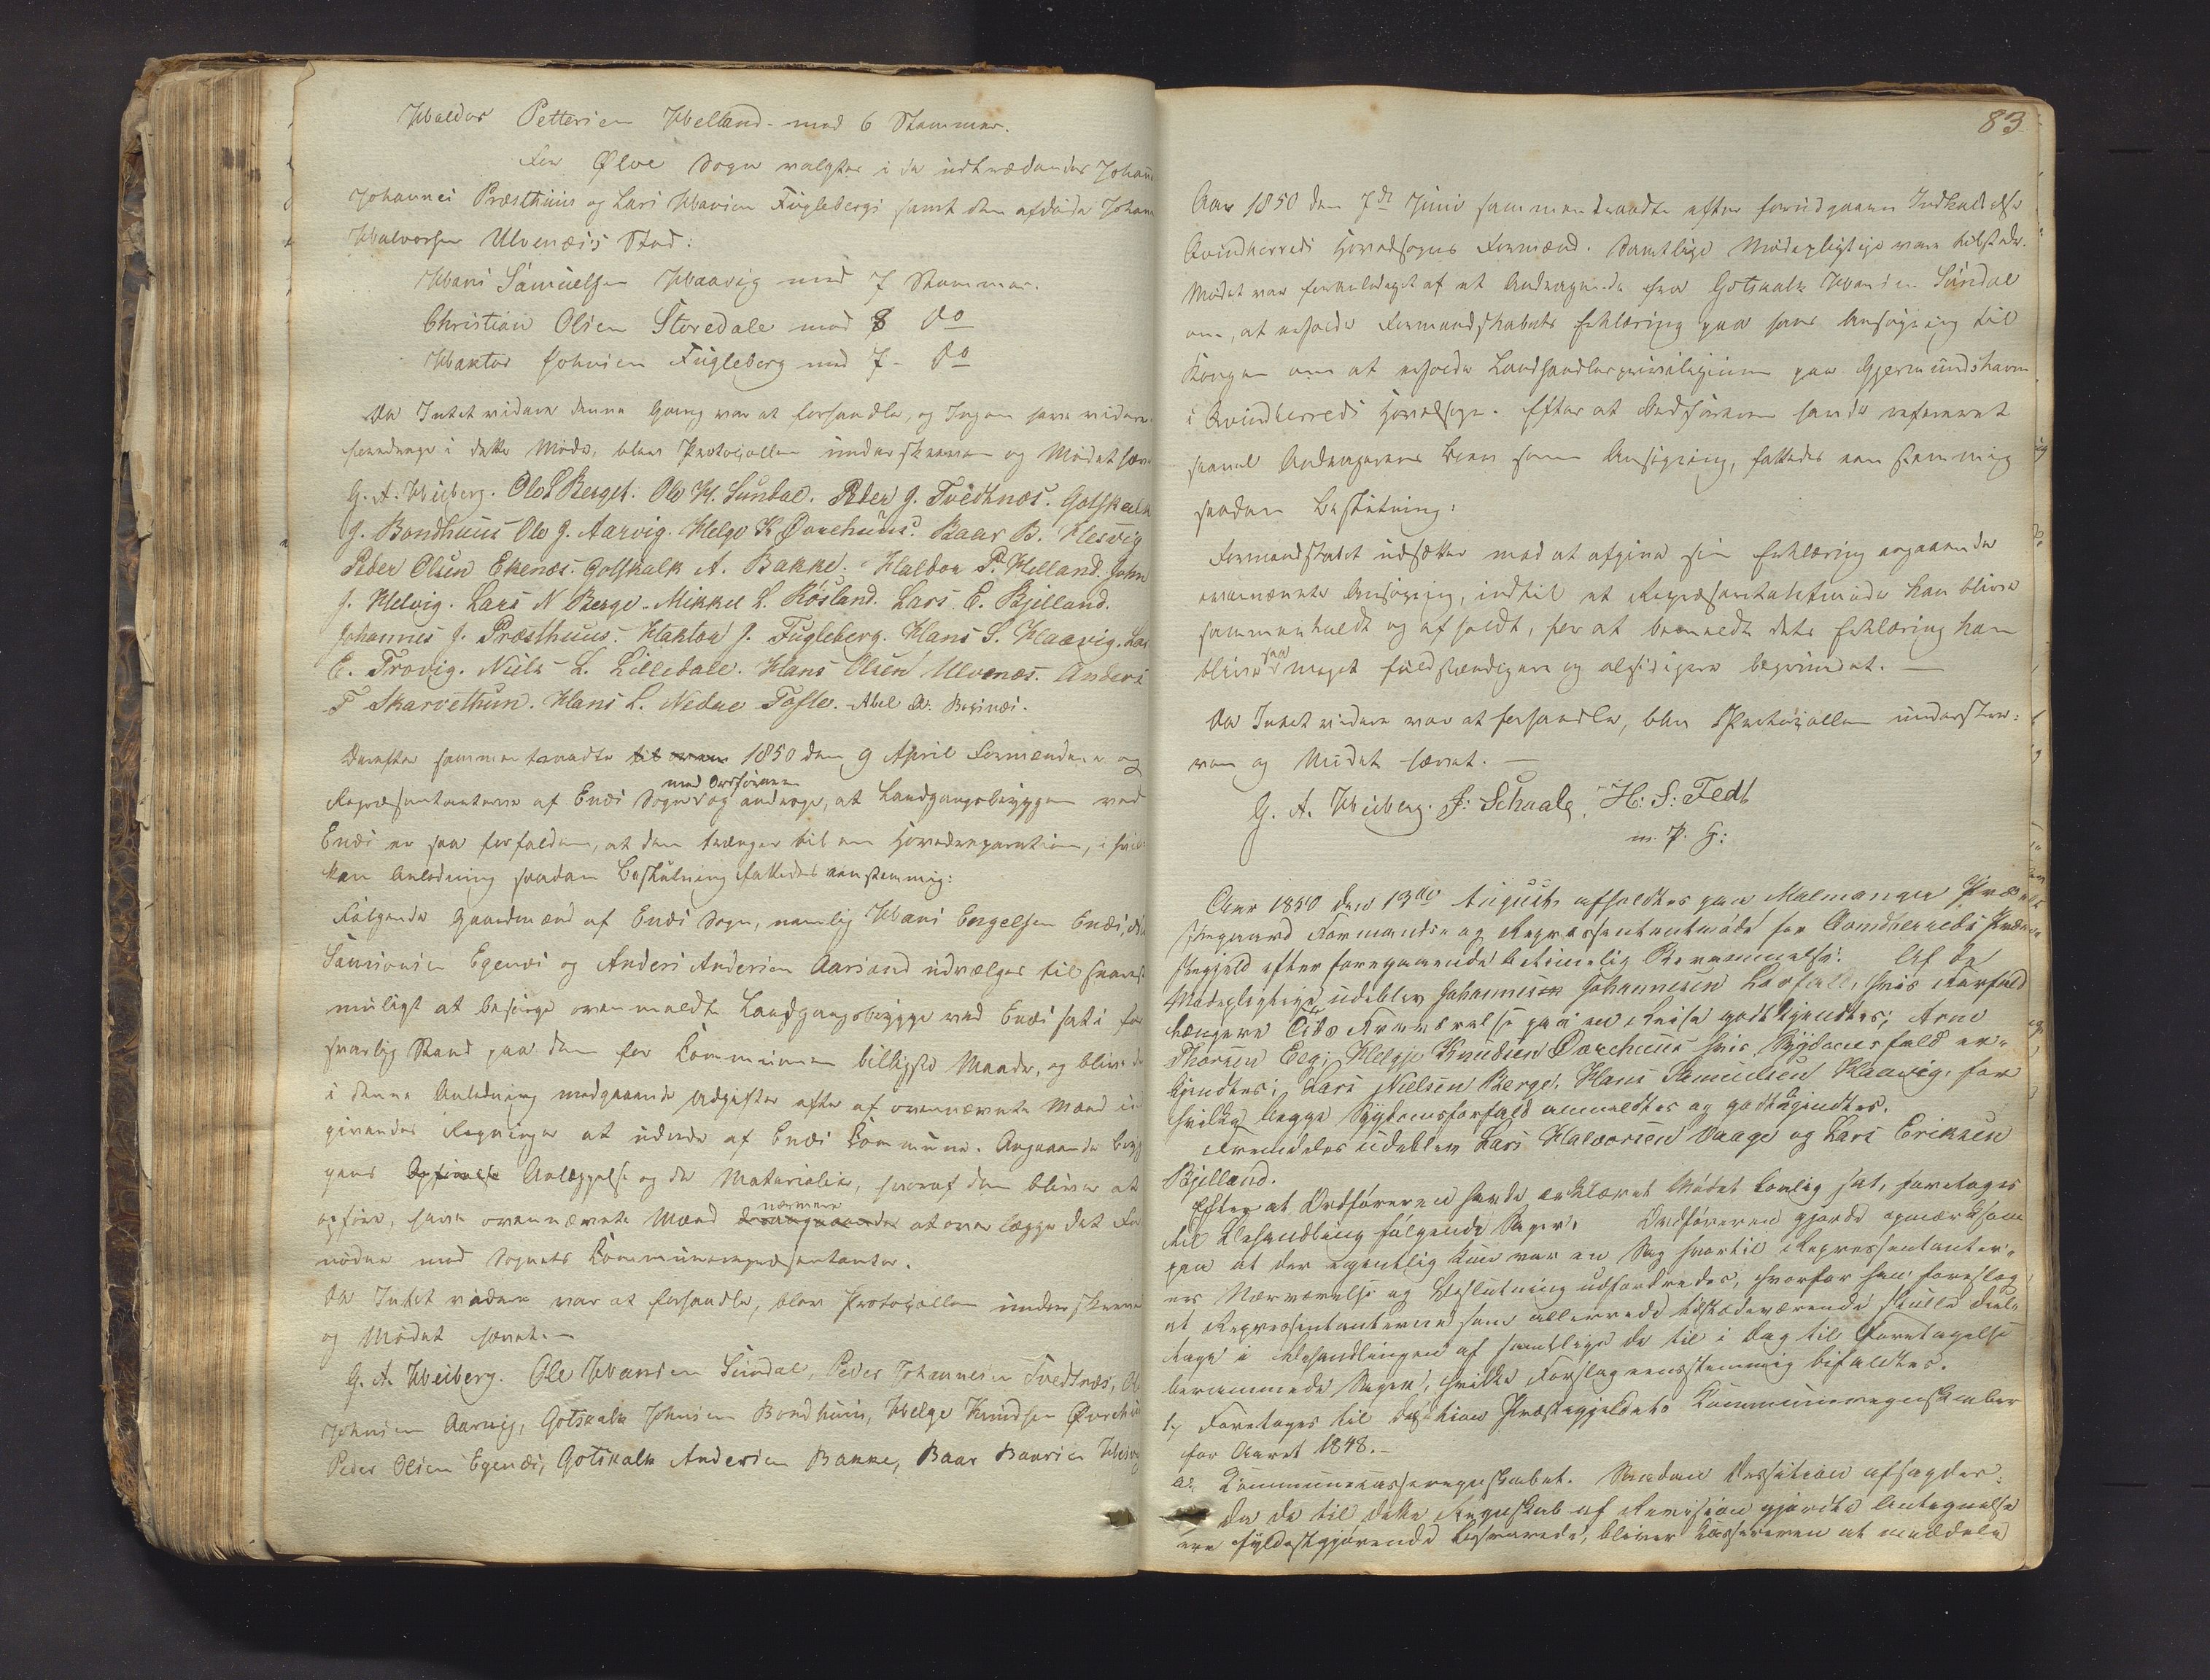 Haldor Pettersen Helland med 6 Stemmer.
For Ølve Sogn valgtes i de udtrædendes
Johannes Præsthuus og Lars Hansen Fuglebergs samt den afdøde Johan
Halvorsen Ulvenæs's Sted:
Hans Samuelsen Haavig med 7 Stemmer.
Christian Olsen Storedale med 8 do
Haktor Johnsen Fugleberg med 7 - do
Da Intet videre denne Gang var at forhandle, og Ingen havde videre
foredrage i dette Møde, blev Protocollen underskreven og Mødet hæv
G. A. Heiberg. Ole L Berget. Ole H. Sundal. Peder J. Tvedtnæs. Gotskalk
J. Bondhuus Ole J. Aarvig. Helge K Øvrehuus. Baar B. Hesvig
Peder Olsen Ekenæs. Gotskalk A. Bakke. Haldor P. Helland. John
J. Helvig. Lars N Berge. Mikkel L. Røsland. Lars E. Bjelland.
Johannes J. Præsthuus. Haktor J. Fugleberg. Hans S. Haavig. Lars
E. Trovig. Niels L. Lilledale. Hans Olsen Ulvenæs. Anders
T Skarvethun. Hans L. Nedre Tofte. Abel A.
Derefter sammentraadte 1850 den 9 April Formændene og
med Ordføreren
Repræsentanterne af Enæs Sogn og androge, at Landgangsbryggen ved
Enæs er saa forfalden, at den trænger til en Hovedreparation, i hvil-
ken Anledning saadan Beslutning fattedes eenstemmig:
Følgende Gaardmænd af Enæs Sogn, nemlig Hans Engelsen Enæs,
Samsonsen Egenæs og Anders Andersen Aarsand udvælges til snarest
muligt at besørge ovenmeldte Landgangsbrygge ved Enæs sat i for
svarlig Stand paa den for Communen billigste Maade, og blive de
i denne Anledning medgaaende Udgifter efter af ovennævnte Mænd
givendes Regninger at udrede af Enæs Commune. Angaaende Bryg
gens Opførelse Anlæggelse og de Materialier, hvoraf den bliver at
nærmere
opføre, have ovennævnte Mænd at overlægge det For
nødne med Sognets Communerepræsentanter.
Da Intet videre var at forhandle, blev Protocollen underskreven
og Mødet hævet. –
G. A. Heiberg. Ole Hansen Sundal, Peder Johannesen Tvedtnæs, Ole
Johnsen Aarvig, Gotskalk Johnsen Bondhuus, Helge Knudsen Øvrehuus
Peder Olsen Egenæs, Gotskalk Andersen Bakke, Baar Baarsen Hesvig
83
Aar 1850 den 7de Juni sammentraadte efter forudgaaen Indkaldelse
Qvindherreds Hovedsogns Formænd. Samtlige Mødepligtige vare tilstede.
Mødet var foranlediget af et Andragende fra Gotskalk Hansen Sundal
om, at erholde Formandskabets Erklæring paa hans Ansøgning til
Kongen om at erholde Landhandlerprivilegium paa Gjermundshavn
i Qvindherreds Hovedsogn. Efter at Ordføreren havde refereret
saavel Andragerens Brev som Ansøgning, fattedes eenstemmig
saadan Beslutning:
Formandskabet udsætter med at afgive sin Erklæring angaaende
ovennævnte Ansøgning, indtil et Repræsentantmøde kan blive
sammenkaldt og afholdt, for at bemeldte dets Erklæring kan
saa
blive meget fuldstændigere og alsidigere begrundet. –
Da Intet videre var at forhandle, blev Protocollen underskre-
ven og Mødet hævet. –
G. A. Heiberg. J: Schaale. H: S: Tedt
m. P. H:
Aar 1850 den 13de August afholdtes paa Malmanger Præ-
stegaard Formands og Repræsentantmøde for Qvindherreds Præ-
stegjeld efter foregaaende betimelig Berammelse. Af de
Mødepligtige udeblev Johannes Johannesen Løvfald, hvis Forfald
længere Tids Fraværelse paa en Reise godtkjendtes; Arne
Thorsen Eeg; Helge Knudsen Øvrehuus hvis Sygdomsfald er-
kjendtes; Lars Nielsen Berge, Hans Samuelsen Haavig, for
hvilke begge Sygdomsforfald anmeldtes og godtkjendtes.
Fremdeles udeblev Lars Halvorsen Vaage og Lars Eriksen
Bjelland.
Efter at Ordføreren havde erklæret Mødet lovlig sat, foretoges
til Behandling følgende Sager: Ordføreren gjorde opmærksom
paa at der egentlig kun var en Sag hvortil Repræsentanter-
nes Nærværelse og Beslutning udfordredes, hvorfor han foreslog
at Repræsentanterne som allerrede tilstedeværende skulle del-
tage i Behandlingen af samtlige de til i Dag til Foretagelse
berammede Sager, hvilke Forslag eensstemmig bifaldtes.
1, Foretoges til Decision Præstegjeldets Communeregnskaber
for Aaret 1848. –
a: Communecasseregnskabet. Saadan Decision afsagdes:
Da de til dette Regnskab af Revisionen gjorte Antegnelser
ere fyldestgjørende besvarede, bliver Kassereren at meddele